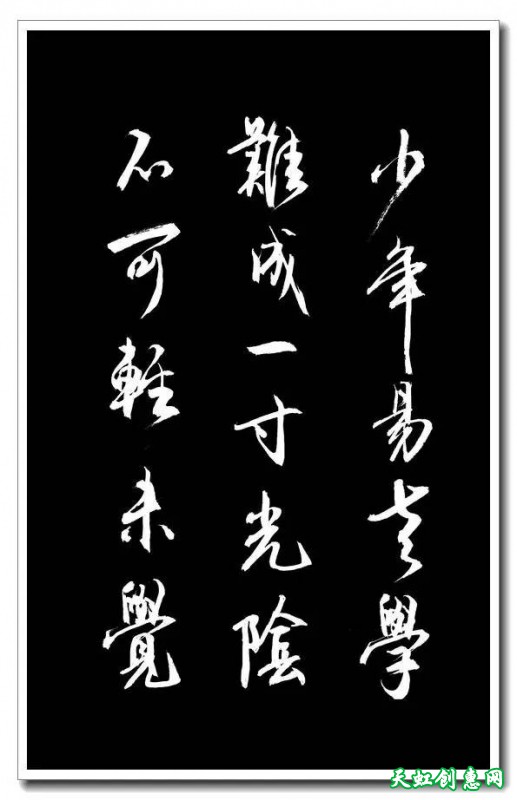 少年易老學
難成一寸光陰
不可輕未覺
天虹创惠网